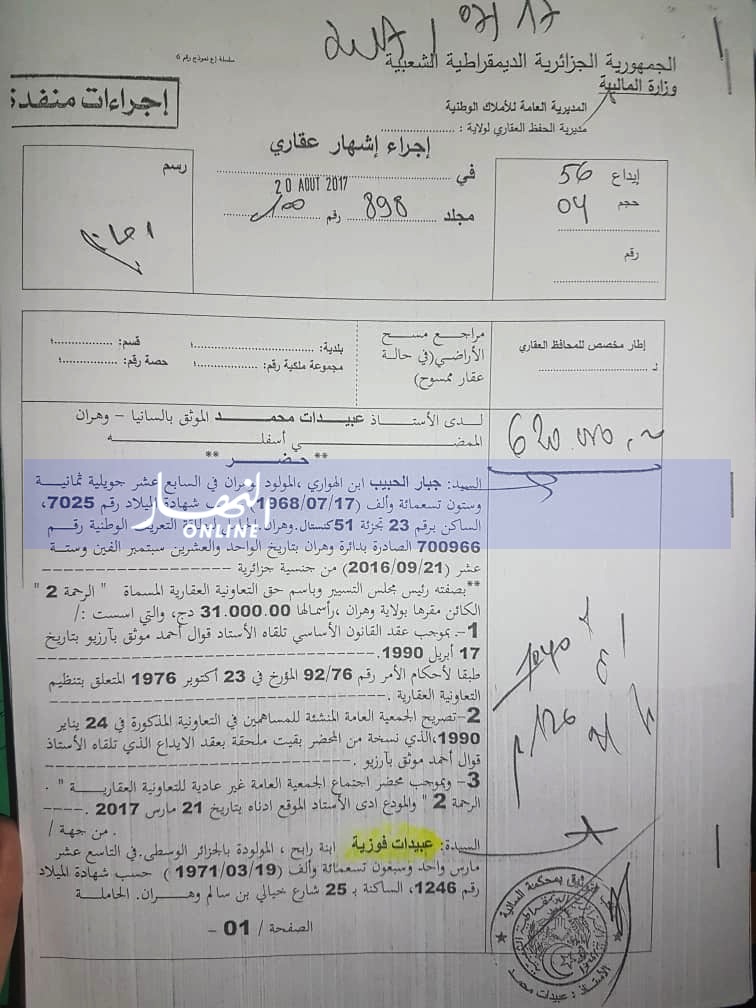 2017 / 07/17
سلسلة إع نموذج رقم 6
الجمهورية الجزائرية الديمقراطية الشعبية
وزارة المالية
إجراءات منفدة
المديرية العامة للأملاك الوطنية
مديرية الحفظ العقاري لولاية :
إجراء إشهار عقاري
رسم
في
20 AOUT 2017
مجلد 898 رقم 100
إيداع 56
حجم 04
رقم
إطار مخصص للمحافظ العقاري
مراجع مسح
الأراضي(في حالة
عقار ممسوح)
بلدية:
قسم:
مجموعة ملكية رقم:
حصة رقم:
لدى الأستاذ عبيدات محمد الموثق بالسانيا – وهران
الممضي أسفله
** حضر **
السيد: جبار الحبيب ابن الهواري ،المولود بوهران في السابع عشر جويلية ثمانية
وستون تسعمائة وألف (1968/07/17) حسب شهادة الميلاد رقم 7025،
الساكن برقم 23 تجزئة 51 كنستال.وهران. التعريف الوطنية رقم
700966 الصادرة بدائرة وهران بتاريخ الواحد والعشرين سبتمبر الفين وستة
عشر (2016/09/21) من جنسية جزائرية
النهار
ONLINE
**بصفته رئيس مجلس التسيير وباسم حق التعاونية العقارية المسماة " الرحمة 2 "
الكائن مقرها بولاية وهران ،رأسمالها 31.000.00 دج، والتي اسست :/
1-. بموجب عقد القانون الأساسي تلقاه الأستاد قوال أحمد موثق بآرزيو بتاريخ
17 أبريل 1990.
طبقا لأحكام الأمر رقم 92/76 المؤرخ في 23 أكتوبر 1976 المتعلق بتنظيم
التعاونية العقارية .
2-تصريح الجمعية العامة المنشئة للمساهمين في التعاونية المذكورة في 24 يناير
1990،الذي نسخة من المحضر بقيت ملحقة بعقد الايداع الذي تلقاه الأستاذ
قوال أحمد موثق بآرزيو .
3- وبموجب محضر اجتماع الجمعية العامة غير عادية للتعاونية العقارية " .
الرحمة 2 " والمودع ادى الأستاد الموقع ادناه بتاريخ 21 مارس 2017 .
. من جهة /
السيدة: عبيدات فوزية ابنة رابح ، المولودة بالجزائر الوسطى.في التاسع عشر
مارس واحد وسبعون تسعمائة وألف (1971/03/19) حسب شهادة الميلاد
رقم 1246، الساكنة ب 25 شارع خيالي بن سالم وهران. الحاملة
الصفحة / 01 -
الأستاذ : عبيدات محمد